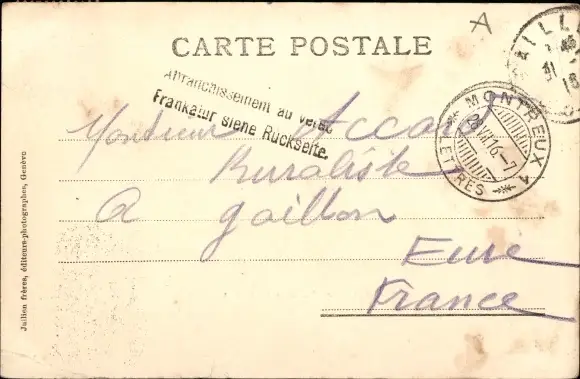 A
CARTE POSTALE
AILL
31
Affranchissement au verso
Frankatur siehe Rückseite.
MONTREUX
29.VII.10-7
LETTRES
Monsieur Accard
Buraliste
A gaillon
Eure
France
Jullien frères, éditeurs-photographes, Genève